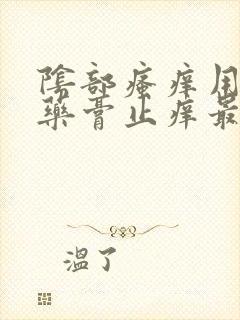 陰部瘙痒用
藥膏止痒最
溫了